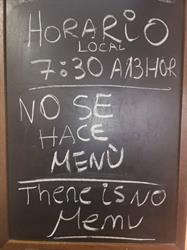 HORARIO
LOCAL
7:30 A 13 HOR
NO SE
HACE
MENÙ
There is NO
Menu